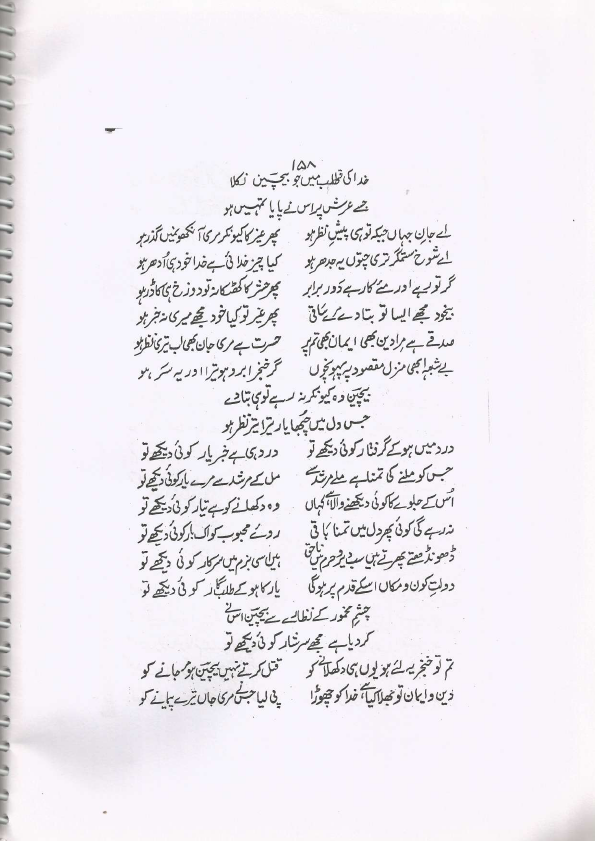 ۱۵۸
خدا کی طلب میں جو بیچین نکلا
جسے عرش پر اس نے پایا تمہیں ہو
اے جانِ جہاں جبکہ تو ہی پیشِ نظر ہو پھر غیر کا کیونکر مری آنکھوں میں گذر ہو
اے شوخ ستمگر تری چتون یہ جدھر ہو کیا چیز خدائی ہے خدا خود ہی اُدھر ہو
گر تو رہے اور مئے کا رہے دور برابر پھر حشر کا کھٹکا نہ تو دوزخ ہی کا ڈر ہو
بیخود مجھے ایسا تو بنا دے مرے ساقی پھر غیر تو کیا خود مجھے میری نہ خبر ہو
صدقے ہے مرا دین بھی ایمان بھی تم پر حسرت ہے مری جان بھی اب تیری نظر ہو
بے شبہ ابھی منزلِ مقصود پہ پہونچوں گر خنجرِ ابرو ہو ترا اور یہ سر ہو
بیچین وہ کیونکر نہ رہے تو ہی بتا دے
جس دل میں چُبھا یار ترا تیرِ نظر ہو
درد میں ہو کے گرفتار کوئی دیکھے تو درد ہی ہے خبرِ یار کوئی دیکھے تو
جس کو ملنے کی تمنا ہے ملے مرشد سے مل کے مرشد سے مرے یار کوئی دیکھے تو
اُس کے جلوے کا کوئی دیکھنے والا ہے کہاں وہ دکھانے کو ہے تیار کوئی دیکھے تو
نہ رہے گی کوئی پھر دل میں تمنا باقی روئے محبوب کو اک بار کوئی دیکھے تو
ڈھونڈھتے پھرتے ہیں سب دیر و حرم میں ناحق ہیں اسی بزم میں سرکار کوئی دیکھے تو
دولتِ کون و مکاں اسکے قدم پر ہوگی یار کا ہو کے طلبگار کوئی دیکھے تو
چشمِ مخمور کے نظارے سے بیچین اس نے
کر دیا ہے مجھے سرشار کوئی دیکھے تو
تم تو خنجر یہ لئے ہو یوں ہی دکھلانے کو قتل کرتے نہیں بیچین ہوں مر جانے کو
دین و ایمان تو بھلا کیا ہے خدا کو چھوڑا پی لیا جس نے مری جاں ترے پیمانے کو